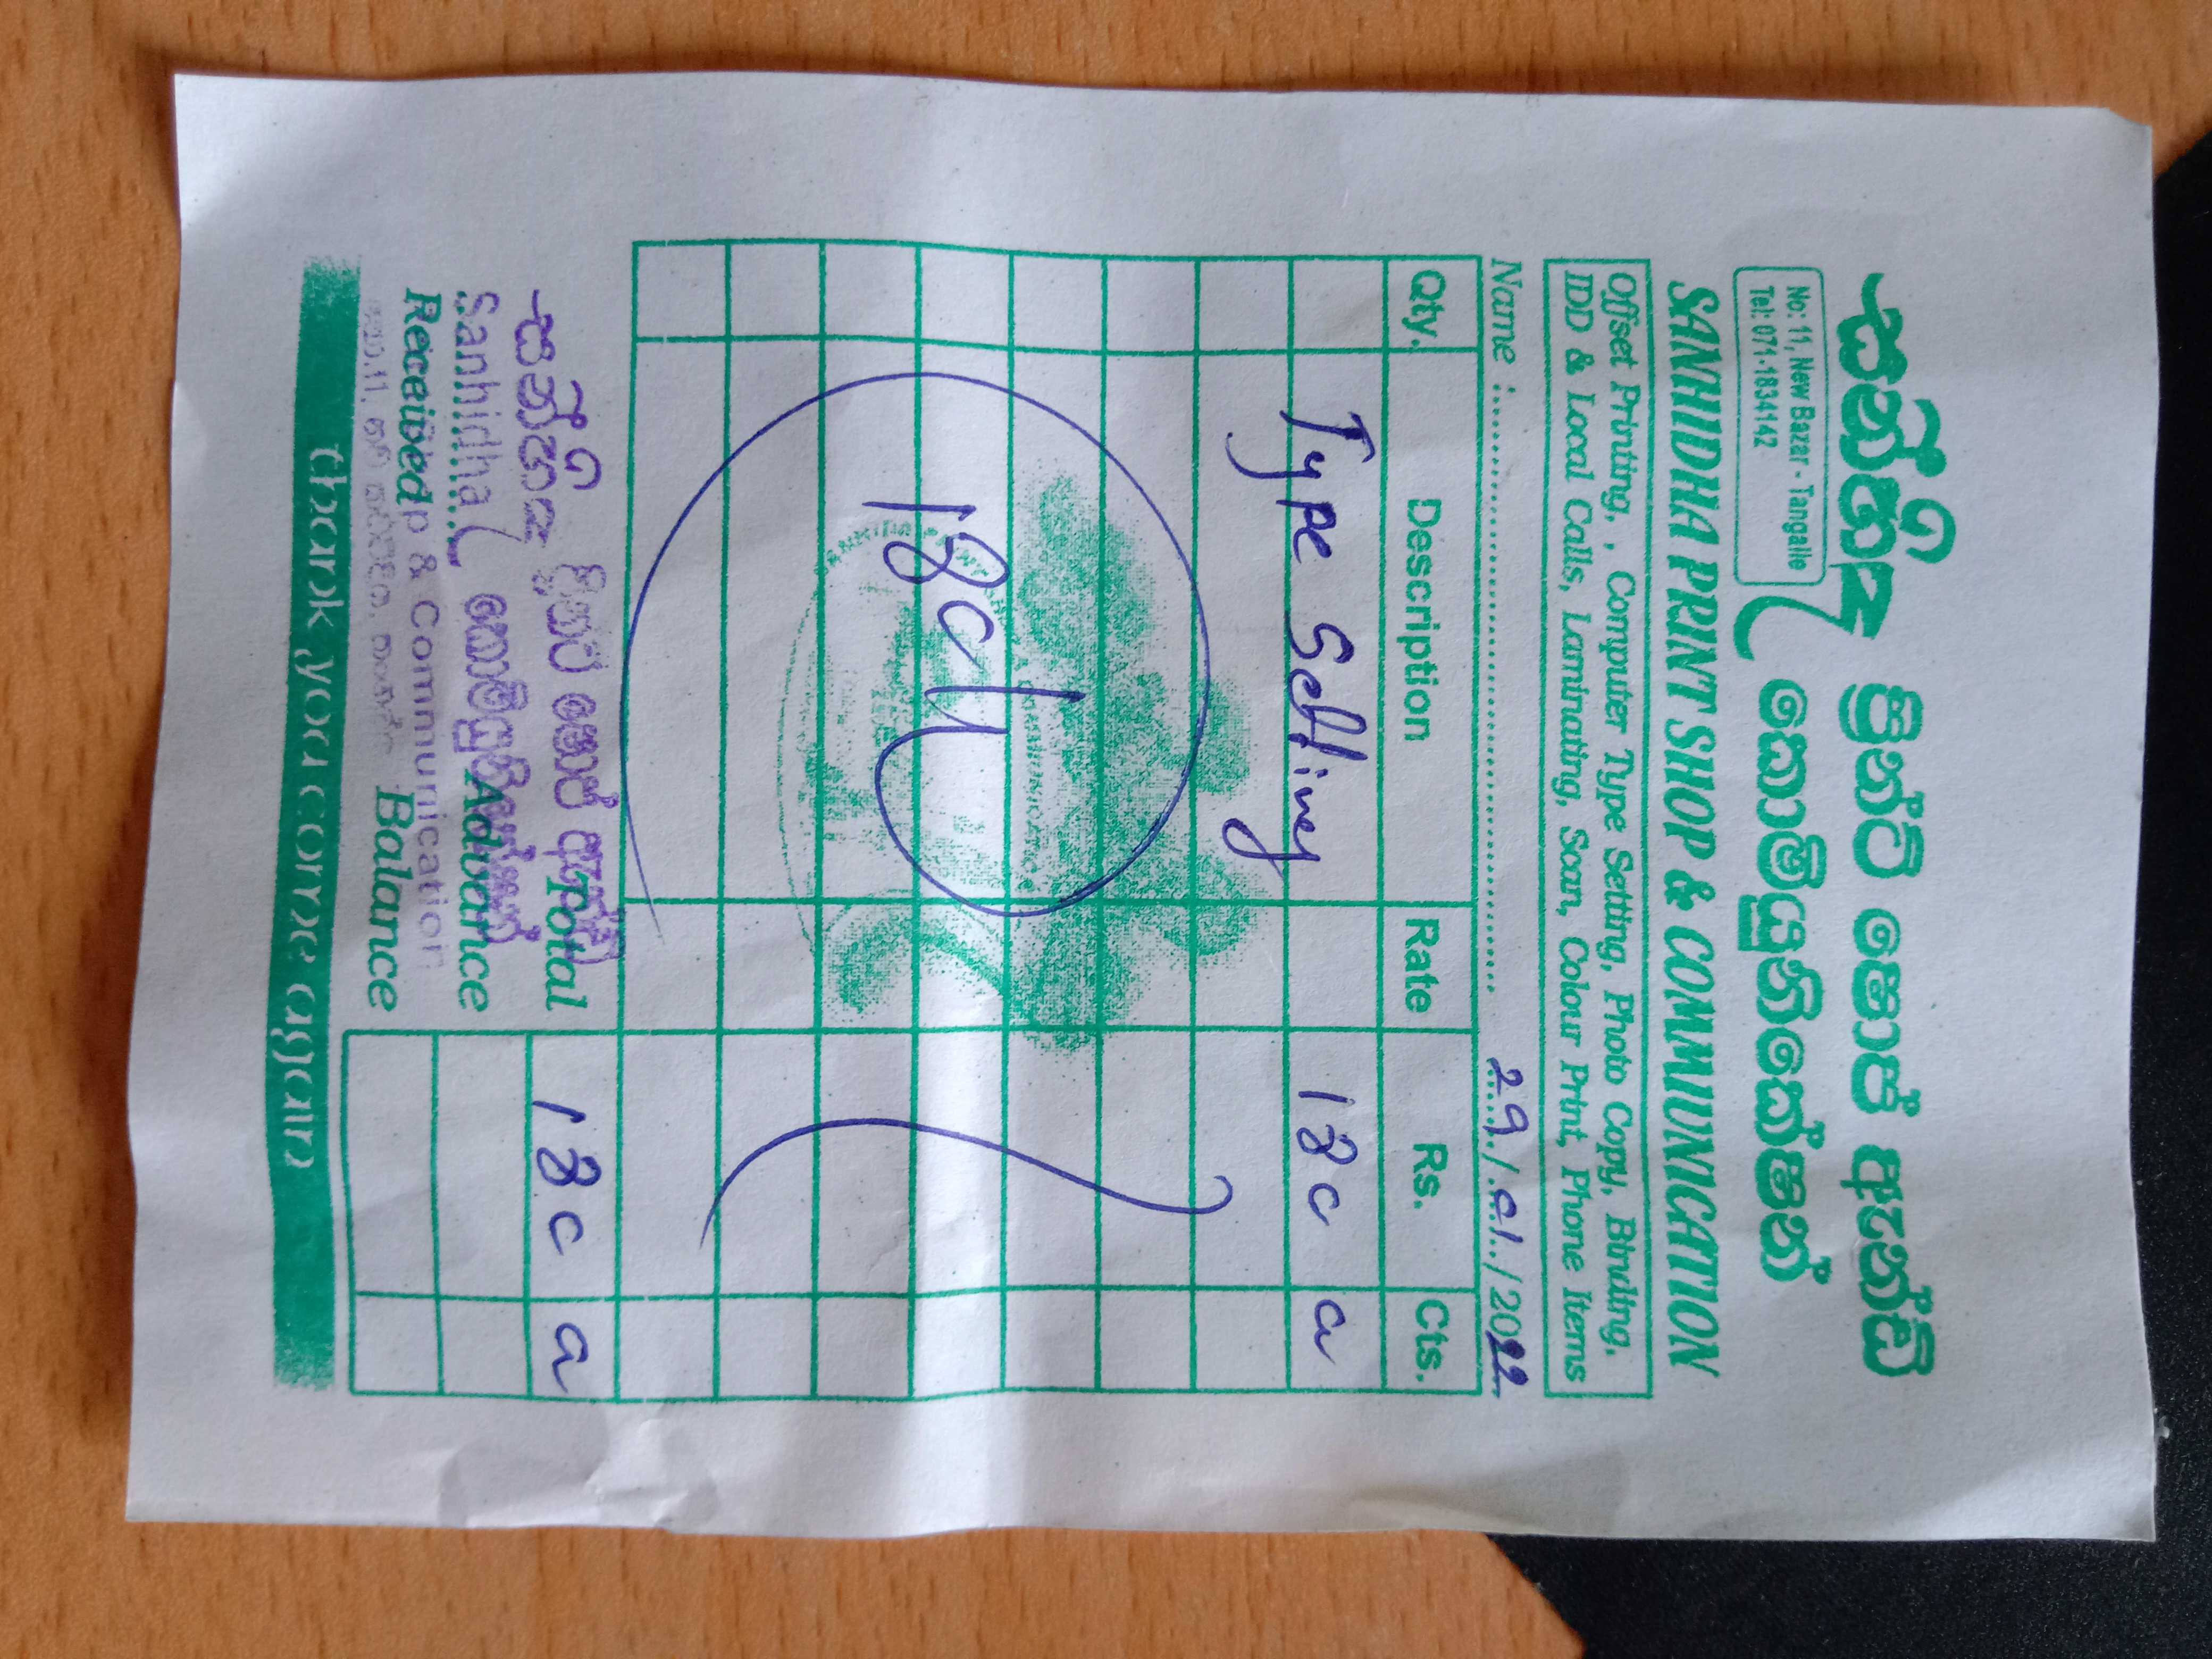 සන්හිඳ ප්‍රින්ට් ෂොප් ඇන්ඩ්
කොමියුනිකේෂන්
No: 11, New Bazar - Tangalle
Tel: 071-1834142
SANHIDHA PRINT SHOP & COMMUNICATION
Offset Printing, , Computer Type Setting, Photo Copy, Binding,
IDD & Local Calls, Laminating, Scan, Colour Print, Phone Items
Name : 29/01/2022
Qty. Description Rate Rs. Cts.
Type Setting 180 00
180/=
සන්හිඳ ප්‍රින්ට් ෂොප් ඇන්ඩ් Total 180 00
කොමියුනිකේෂන් Advance
Sanhidha & Communication
Received Balance
thank you come again